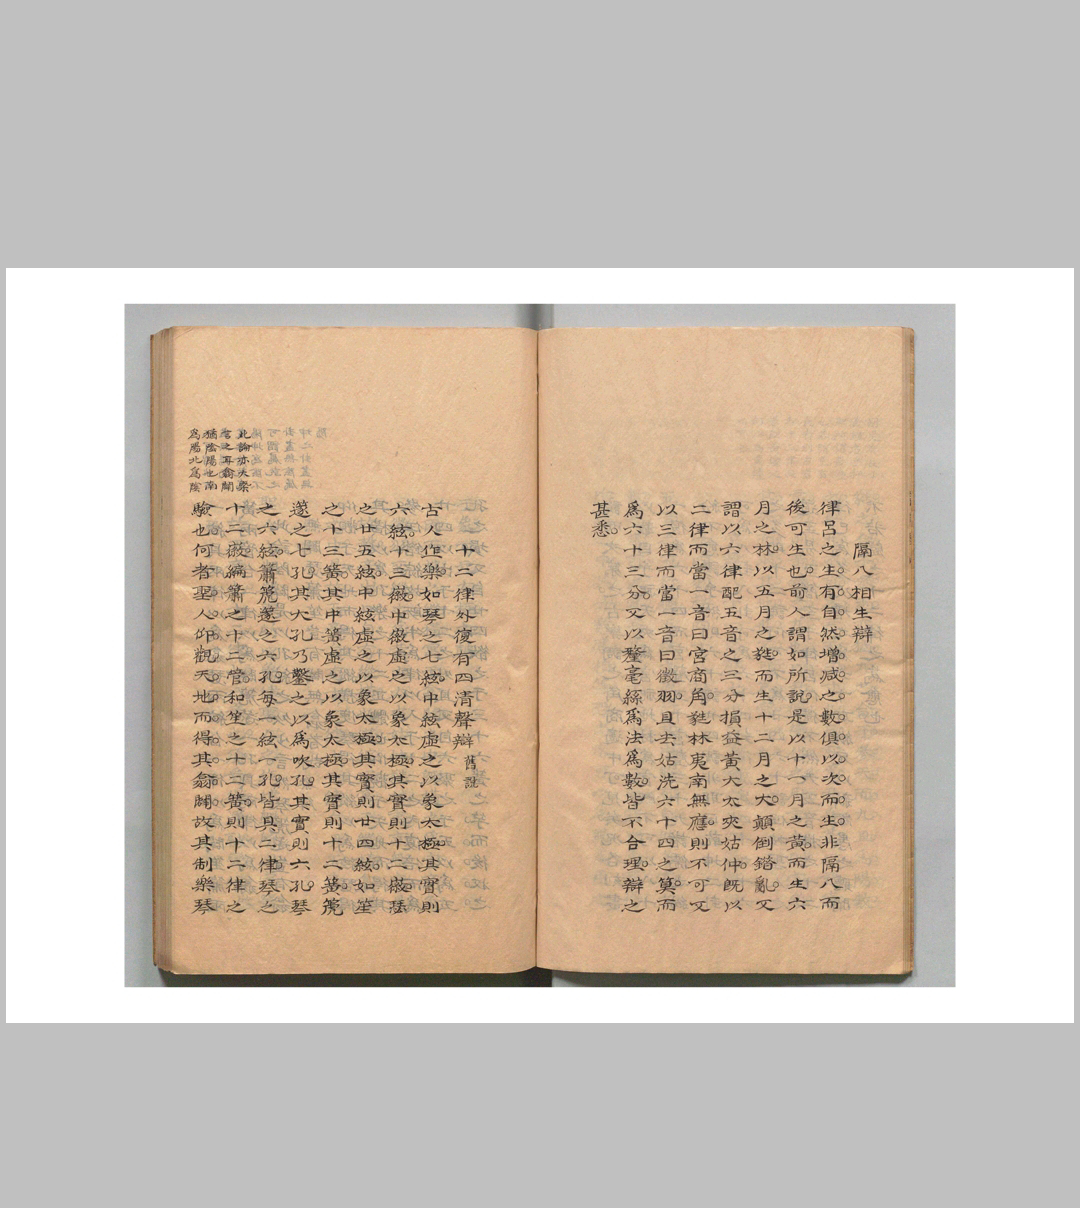 隔八相生辯
律呂之生有自然增減之數俱以次而生非隔八而
後可生也前人謂如所說是以十一月之黃而生六
月之林以五月之蕤而生十二月之大顛倒錯亂又
謂以六律配五音之三分損益黃大太夾姑仲既以
二律而當一音曰宮商角蕤林夷南無應則不可又
以三律而當一音曰徵羽且去姑洗六十四之筭而
爲六十三分又以釐毫絲爲法爲數皆不合理辯之
甚悉
十二律外復有四清聲辯 舊說
古人作樂如琴之七絃中絃虛之以象太極其實則
六絃十三徽中徽虛之以象太極其實則十二徽瑟
之廿五絃中絃虛之以象太極其實則廿四絃如笙
之十三簧其中簧虛之以象太極其實則十二簧箎
篴之七孔其大孔乃鑿之以爲吹孔其實則六孔琴
之六絃簫箎篴之六孔每一絃一孔皆具二律琴之
十二徽編簫之十二管和笙之十二簧則十二律之
驗也何者聖人仰觀天地而得其翕闢故其制樂琴
此論亦大槩
言之耳翕闢
猶陰陽也南
爲陽北爲陰